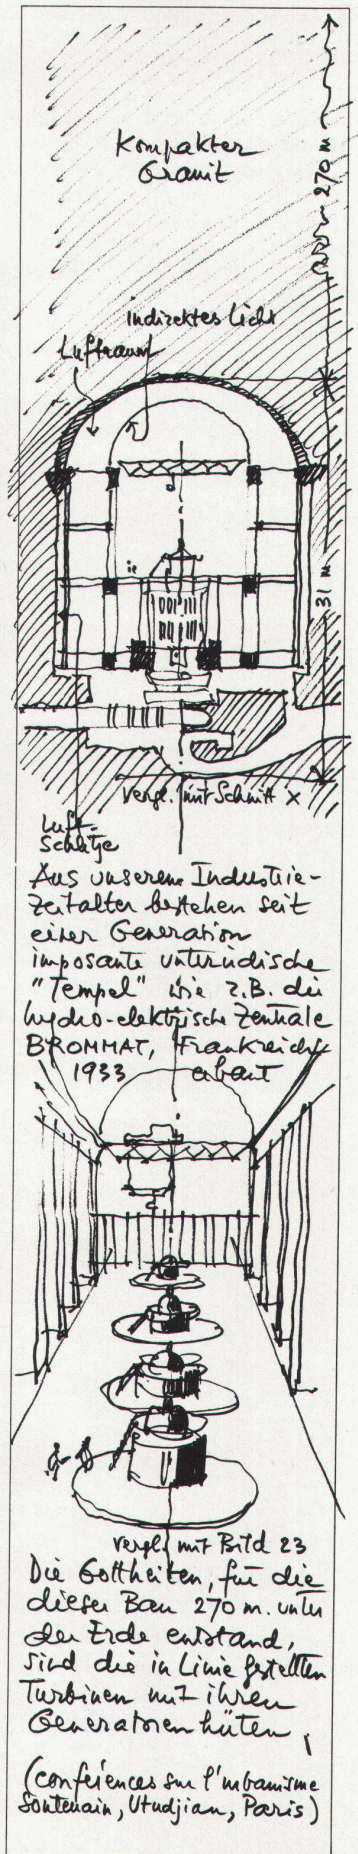 Kompakter
Granit
270 m
indirektes Licht
Luftraum
31 m
vergl. mit Schnitt X
Luft-
Schlitze
Aus unserem Industrie-
zeitalter bestehen seit
einer Generation
imposante unterirdische
"Tempel" wie z.B. die
hydro-elektrische Zentrale
BROMMAT, Frankreich
1933 erbaut
vergl. mit Bild 23
Die Gottheiten, für die
dieser Bau 270 m. unter
der Erde entstand,
sind die in Linie gestellten
Turbinen mit ihren
Generatorenhüten
(conférences sur l'urbanisme
Souterrain, Utudjian, Paris)